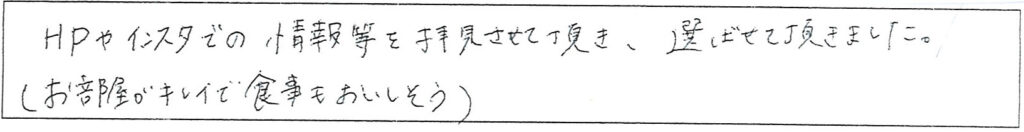 HPやインスタでの情報等を拝見させて頂き、選ばせて頂きました。
(お部屋がキレイで食事もおいしそう)